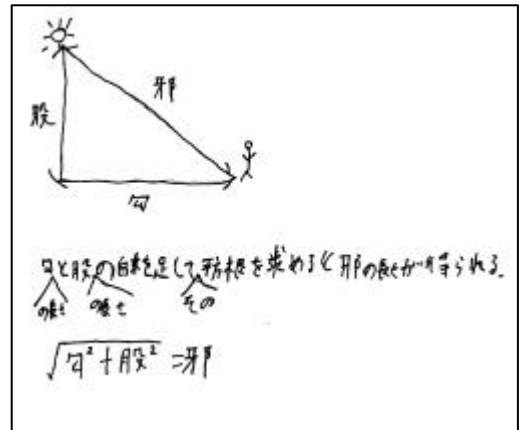 股
邪
勾
勾と股の自乗を足して平方根を求めると邪の長さが得られる。
の長さ
の長さ
その
√勾²+股² =邪